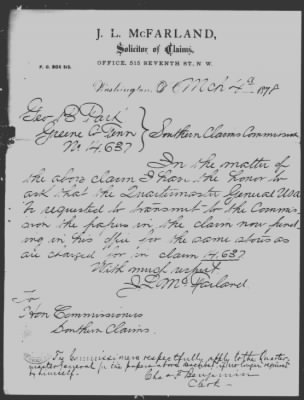 J. L. McFARLAND,
Solicitor of Claims,
P. O. BOX 515.
OFFICE, 515 SEVENTH ST., N. W.
Washington, D. C. Mch 4th 1878
Geo. B. Park
Greene Co Tenn
No 14,637
Southern Claims Commission
In the matter of
the above claim I have the honor to
ask that the Quartermaster General USA
be requested to transmit to the Commis-
sion the papers in the claim now pend
ing in this office for the same stores as
are charged for in claim 14,637
With much respect
J L McFarland
To
Hon Commissioners
Southern Claims.
The Commissioners respectfully apply to the Quarter-
master General for the papers above described, if no longer required
by himself.
Chas F Benjamin
Clerk